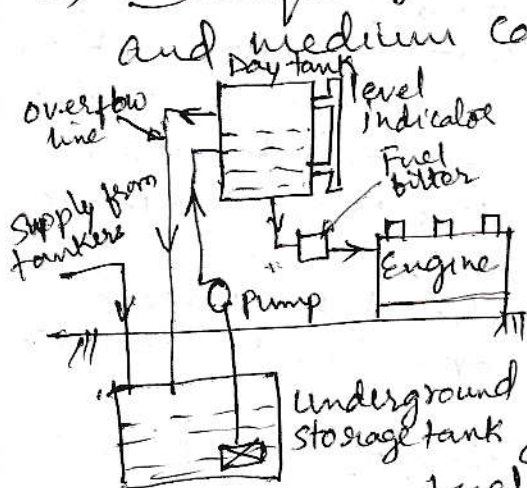 and medium Ca
Day tank
level
indicator
overflow
line
Fuel
filter
Supply from
tankers
Engine
Pump
underground
storage tank